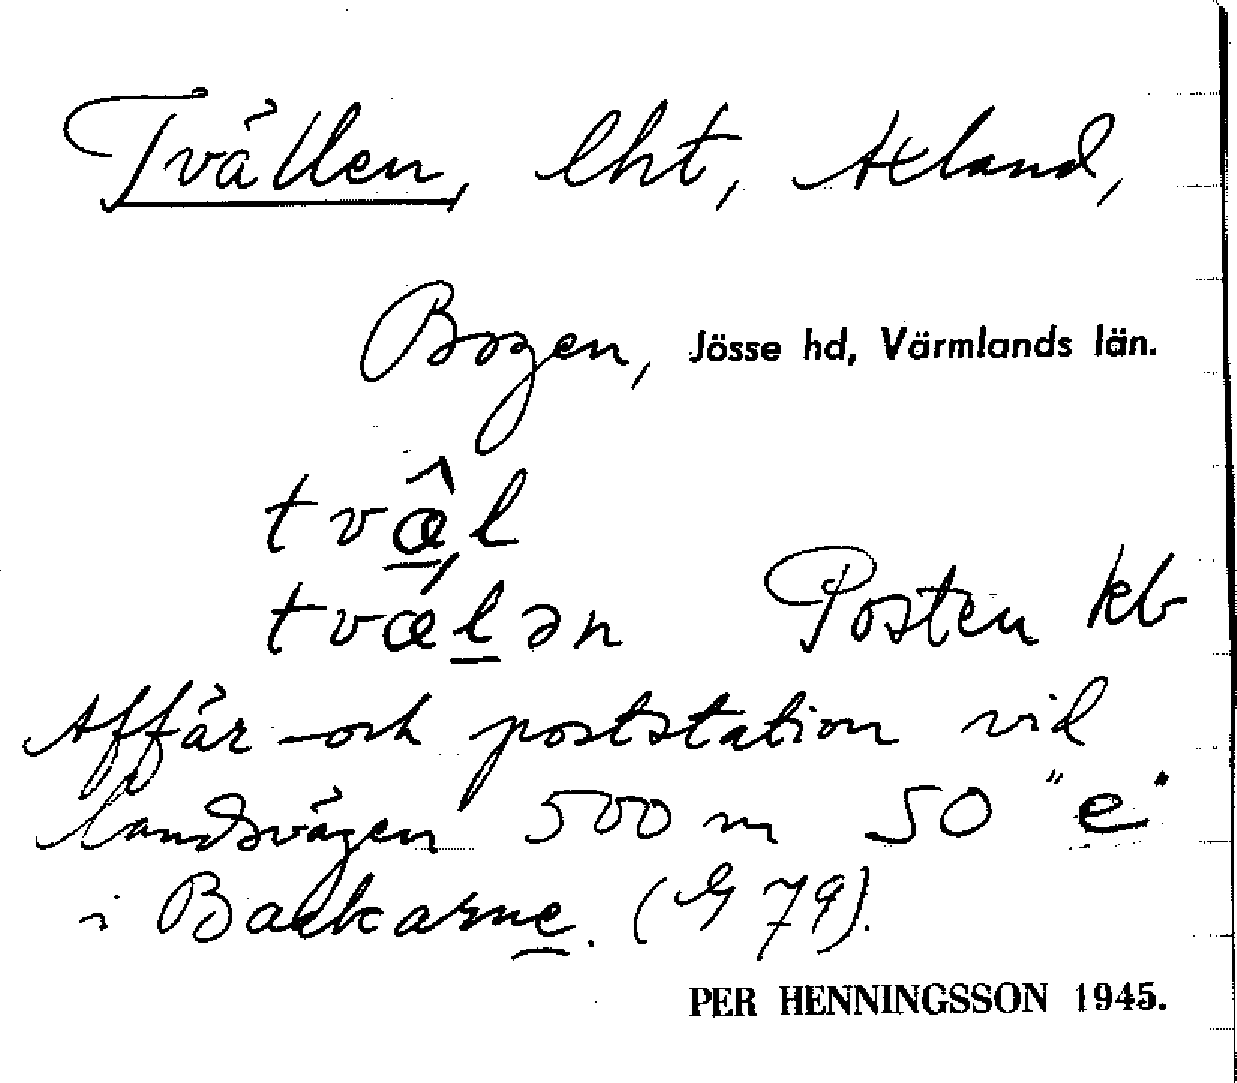 Tvällen, lht, Axland,
Bogen, Jösse hd, Värmlands län.
tvæ̂l
tvælən Posten kb
Affär- och poststation vid
landsvägen 500 m SO "e"
i Backarne. (G 79).
PER HENNINGSSON 1945.